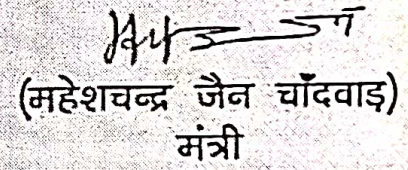 (महेशचन्द्र जैन चाँदवाड़)
मंत्री